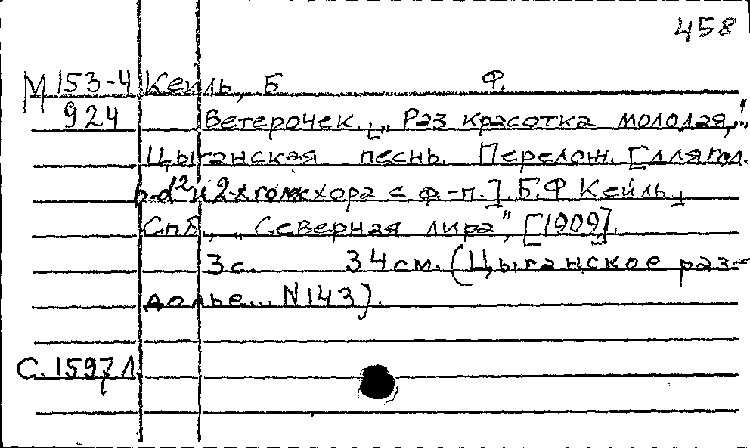 458
М 153-4 Кейль, Б. Ф.
924 Ветерочек. [„Раз красотка молодая,"]
Цыганская песнь. Перелож. [для гол.
b-d² и 2-хголж хора с ф-п.]. Б.Ф Кейль.
Спб., „Северная лира", [1909].
3с. 34см. (Цыганское раз-
долье... N143).
С. 1597 Л